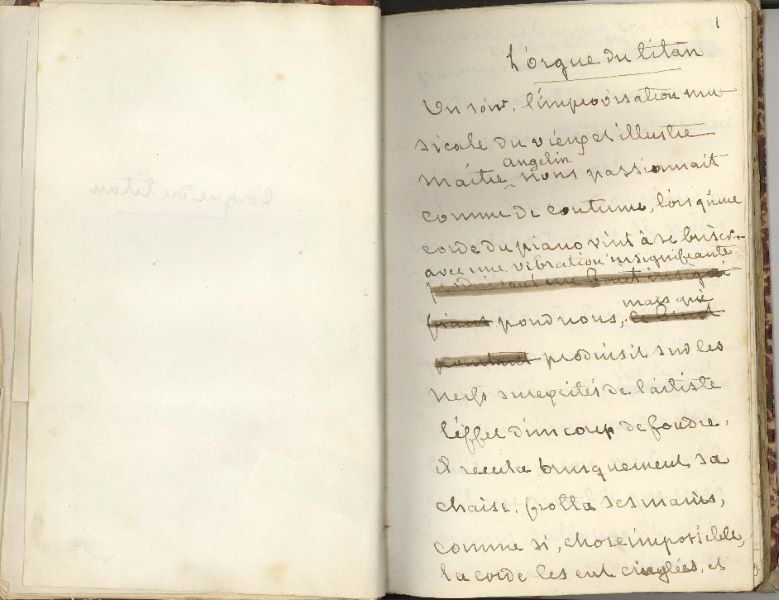 1
L'orgue du titan
Un soir, l'improvisation mu
sicale du vieux et illustre
angelin
maître nous passionnait
comme de coutume, lorsqu'une
corde du piano vint à se briser
avec une vibration insignifiante
mais qui
pour nous,
produisit sur les
nerfs surexcités de l'artiste
l'effet d'un coup de foudre.
il recula brusquement sa
chaise, frotta ses mains,
comme si, chose impossible,
la corde les eut cinglées, et